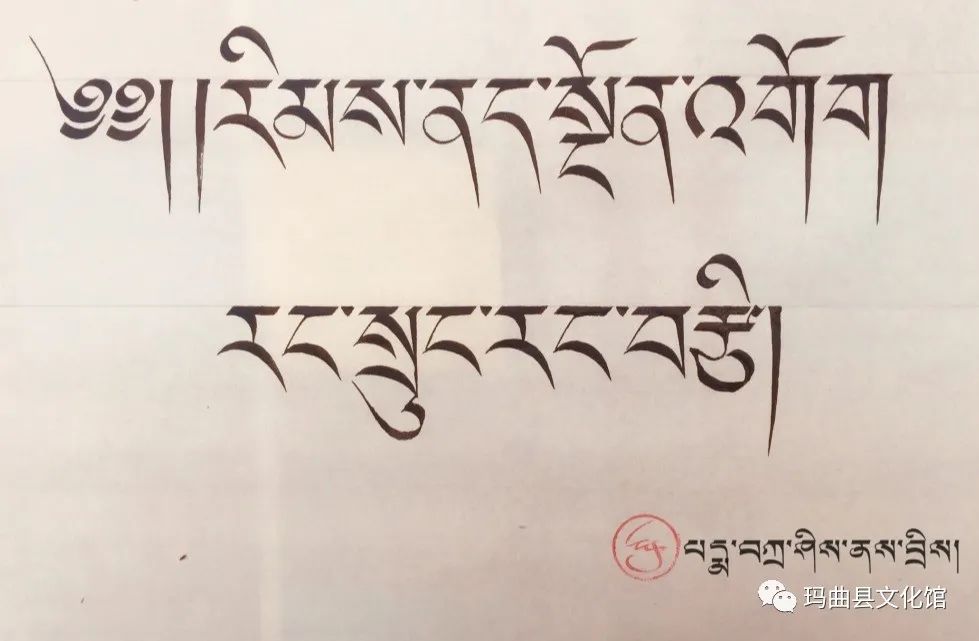 ༄༅། །རིམས་ནད་སྔོན་འགོག
རང་སྲུང་རང་བརྩི།
པདྨ་བཀྲ་ཤིས་ནས་བྲིས།
玛曲县文化馆